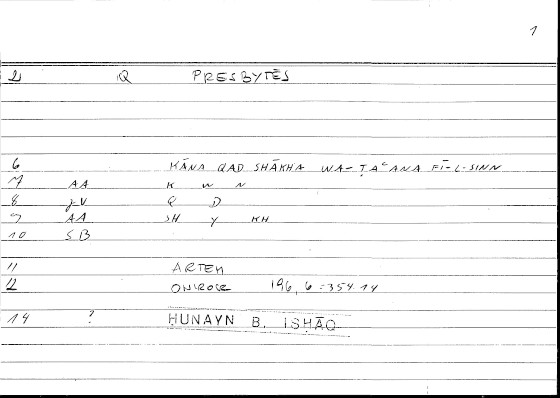 1
2 Q PRESBYTĒS
6 KĀNA QAD SHĀKHA WA-ṬAʿANA FĪ-L-SINN
7 AA K W N
8 JV Q D
9 AA SH Y KH
10 SB
11 ARTEM
12 ONIROCR 196,6=354.14
14 ? ḤUNAYN B. ISḤĀQ